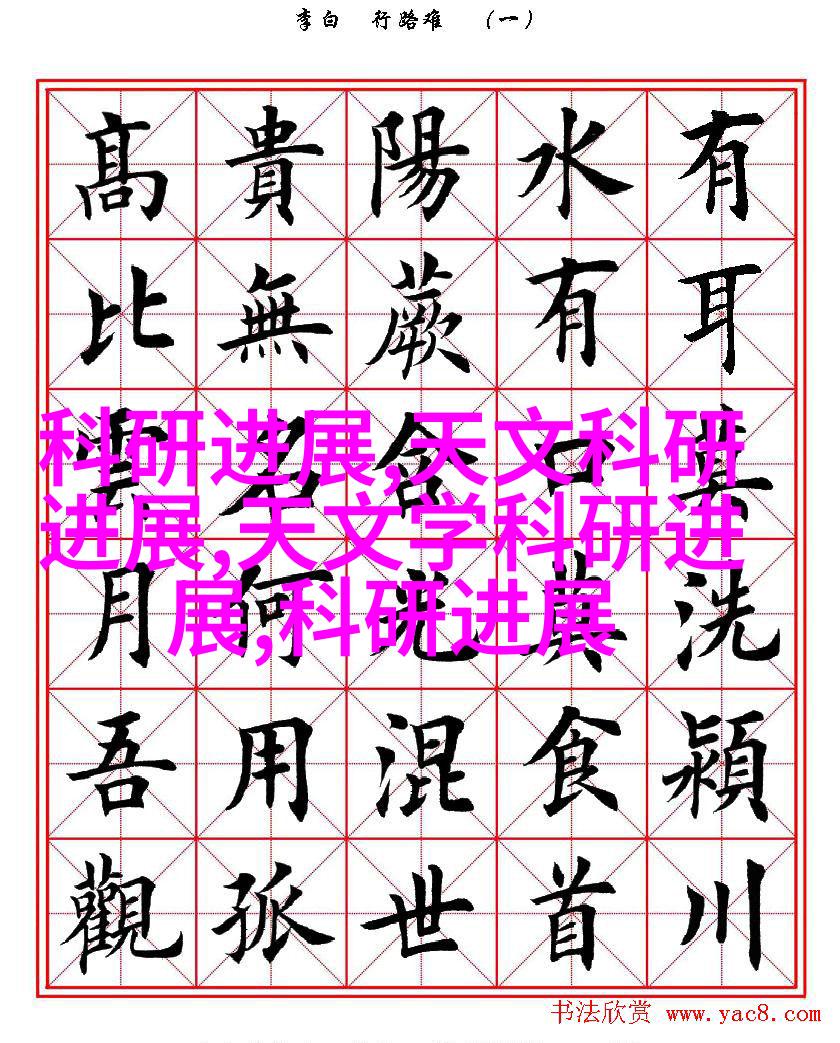 李白 行路难 （一）
有耳莫洗潁川
水有口莫食首
陽蕨含光混世
貴無名何用孤
高比雲月吾觀
科研进展,天文科研
进展,天文学科研进
展,科研进展
书法欣赏 www.yac8.com